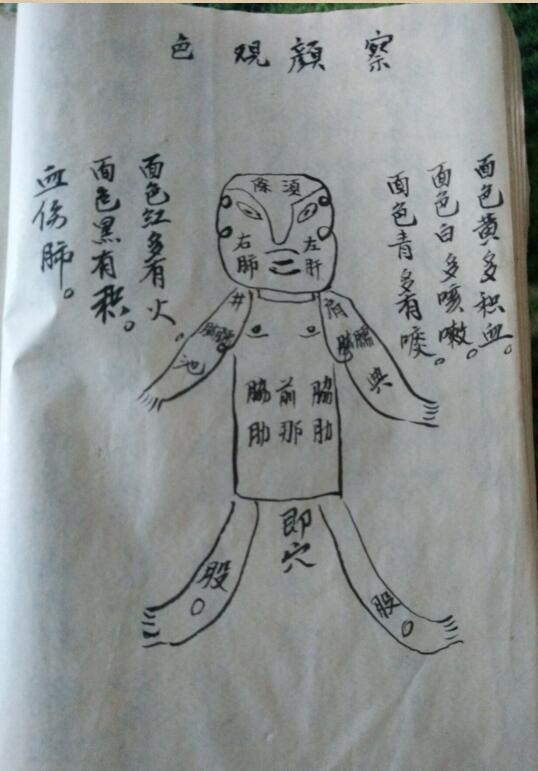 察顏观色
面色黄多积血。
面色白多咳嗽。
面色青多有痰。
面色红多有火。
面色黑有积。
血伤肺。
须條
左肝
右肺
井
池
典
脇前脇
肋那肋
即穴
股
股